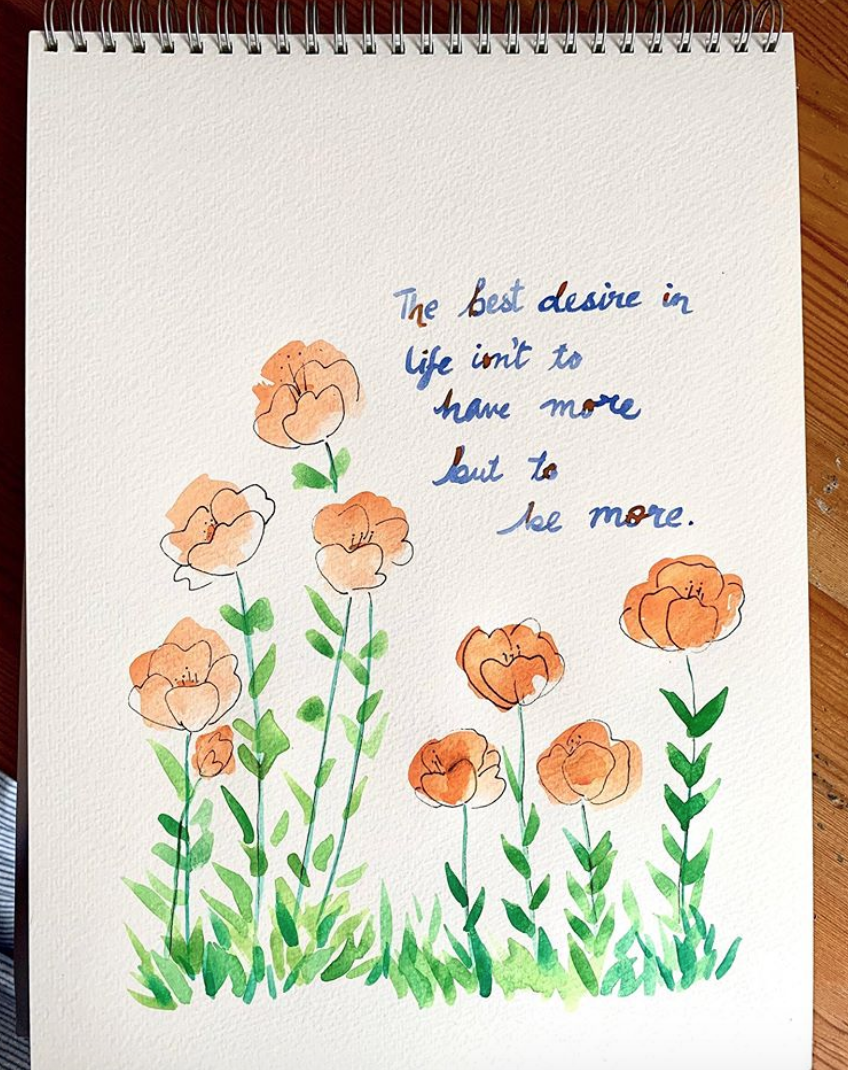 The best desire in
life isn't to
have more
but to
be more.